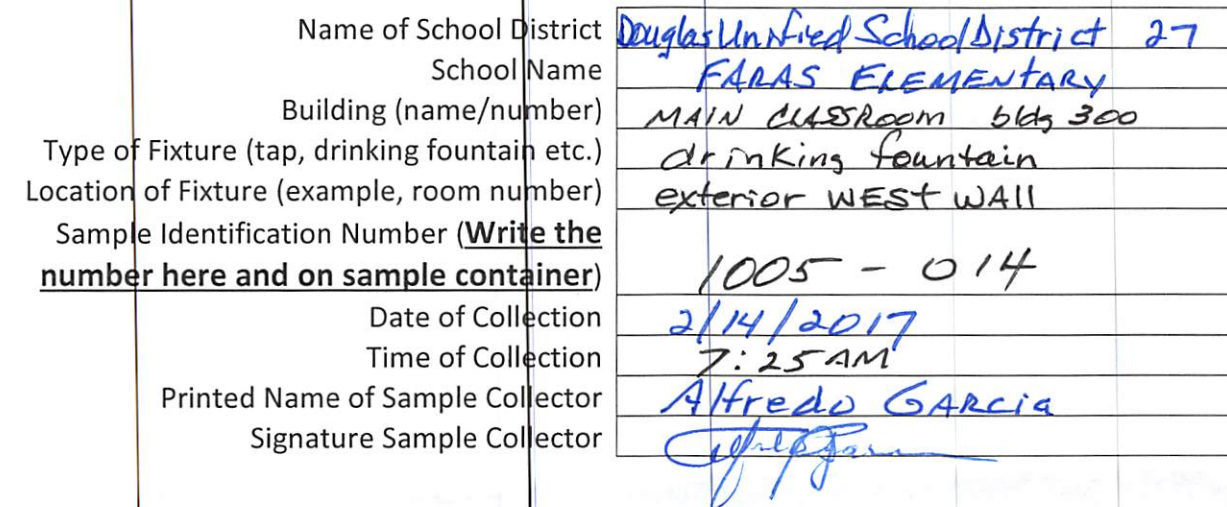 Name of School District Douglas Unified School District 27
School Name FARAS ELEMENTARY
Building (name/number) MAIN CLASSROOM bldg 300
Type of Fixture (tap, drinking fountain etc.) drinking fountain
Location of Fixture (example, room number) exterior WEST WALL
Sample Identification Number (Write the
number here and on sample container) 1005 - 014
Date of Collection 2/14/2017
Time of Collection 7:25 AM
Printed Name of Sample Collector Alfredo GARCia
Signature Sample Collector